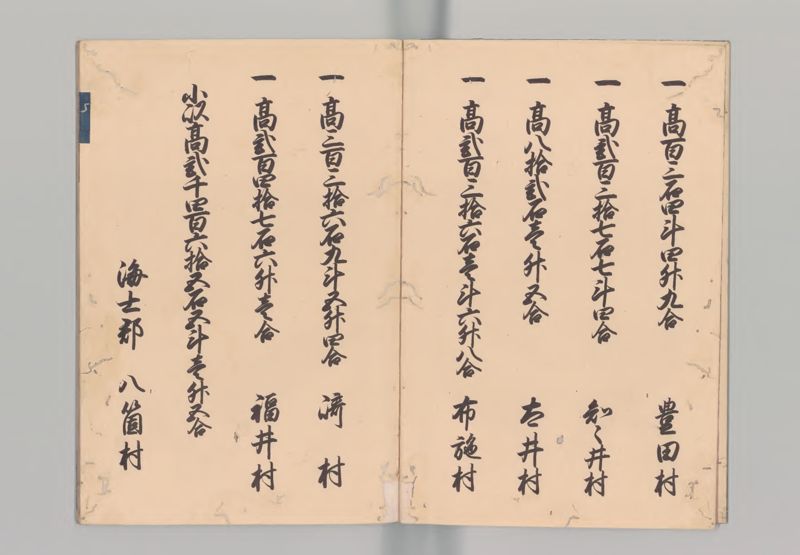 一 高百三石四斗四升九合 豊田村
一 高弐百三拾七石七斗四合 知々井村
一 高八拾弐石壱升五合 太井村
一 高弐百三拾六石壱斗六升八合 布施村
一 高三百三拾六石九斗五升四合 崎村
一 高弐百四拾七石六升壱合 福井村
小以高弐千四百六拾五石五斗壱升五合
海士郡 八箇村